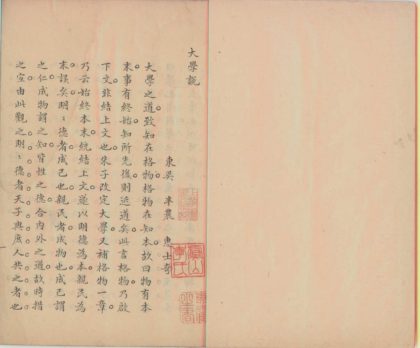 大學說
東吳 半農 惠士奇
大學之道致知在格物格物在知本故曰物有本
末事有終始知所先後則近道矣此言格物乃啟
下文非結上文也朱子改定大學又補格物一章
乃云始終本末統結上文遂以明德為本親民為
末誤矣明明德者成己也親民者成物也成己謂
之仁成物謂之知皆性之德合內外之道故時措
之宜由此觀之明明德者天子與庶人共之者也